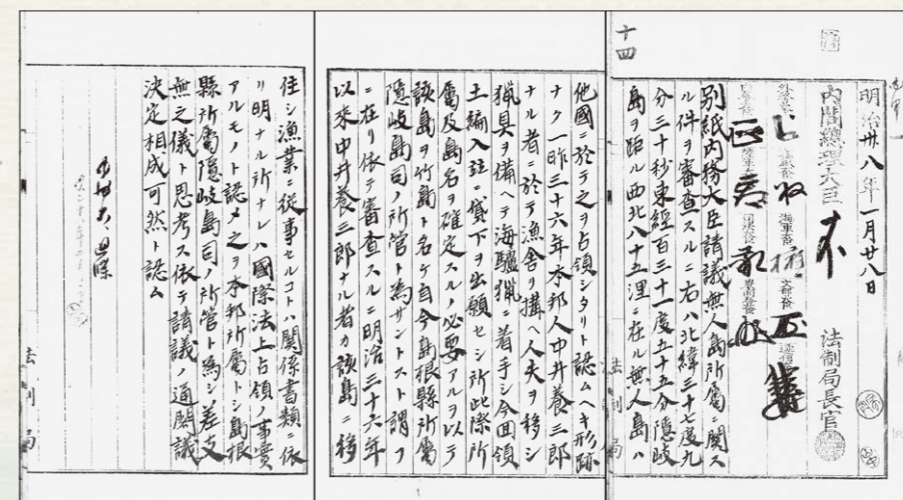 十四
明治卅八年一月廿八日
内閣總理大臣
法制局長官
別紙内務大臣請議無人島所屬ニ關ス
ル件ヲ審査スルニ右ハ北緯三十七度九
分三十秒東經百三十一度五十五分隠岐
島ヲ距ル西北八十五浬ニ在ル無人島ハ
他國ニ於テ之ヲ占領シタリト認ムヘキ形跡
ナク一昨三十六年本邦人中井養三郎
ナル者ニ於テ漁舎ヲ構ヘ人夫ヲ移シ
猟具ヲ備ヘテ海驢猟ニ着手シ今回領
土編入並ニ貸下ヲ出願セシ所此際所
屬及島名ヲ確定スルノ必要アルヲ以テ
該島ヲ竹島ト名ケ自今島根縣所屬
隠岐島司ノ所管ト為サントスト謂フ
ニ在リ依テ審査スルニ明治三十六年
以来中井養三郎ナル者カ該島ニ移
住シ漁業ニ従事セルコトハ關係書類ニ依
リ明ナル所ナレハ國際法上占領ノ事實
アルモノト認メ之ヲ本邦所屬トシ島根
縣所屬隠岐島司ノ所管ト為シ差支
無之儀ト思考ス依テ請議ノ通閣議
決定相成可然ト認ム
法制局